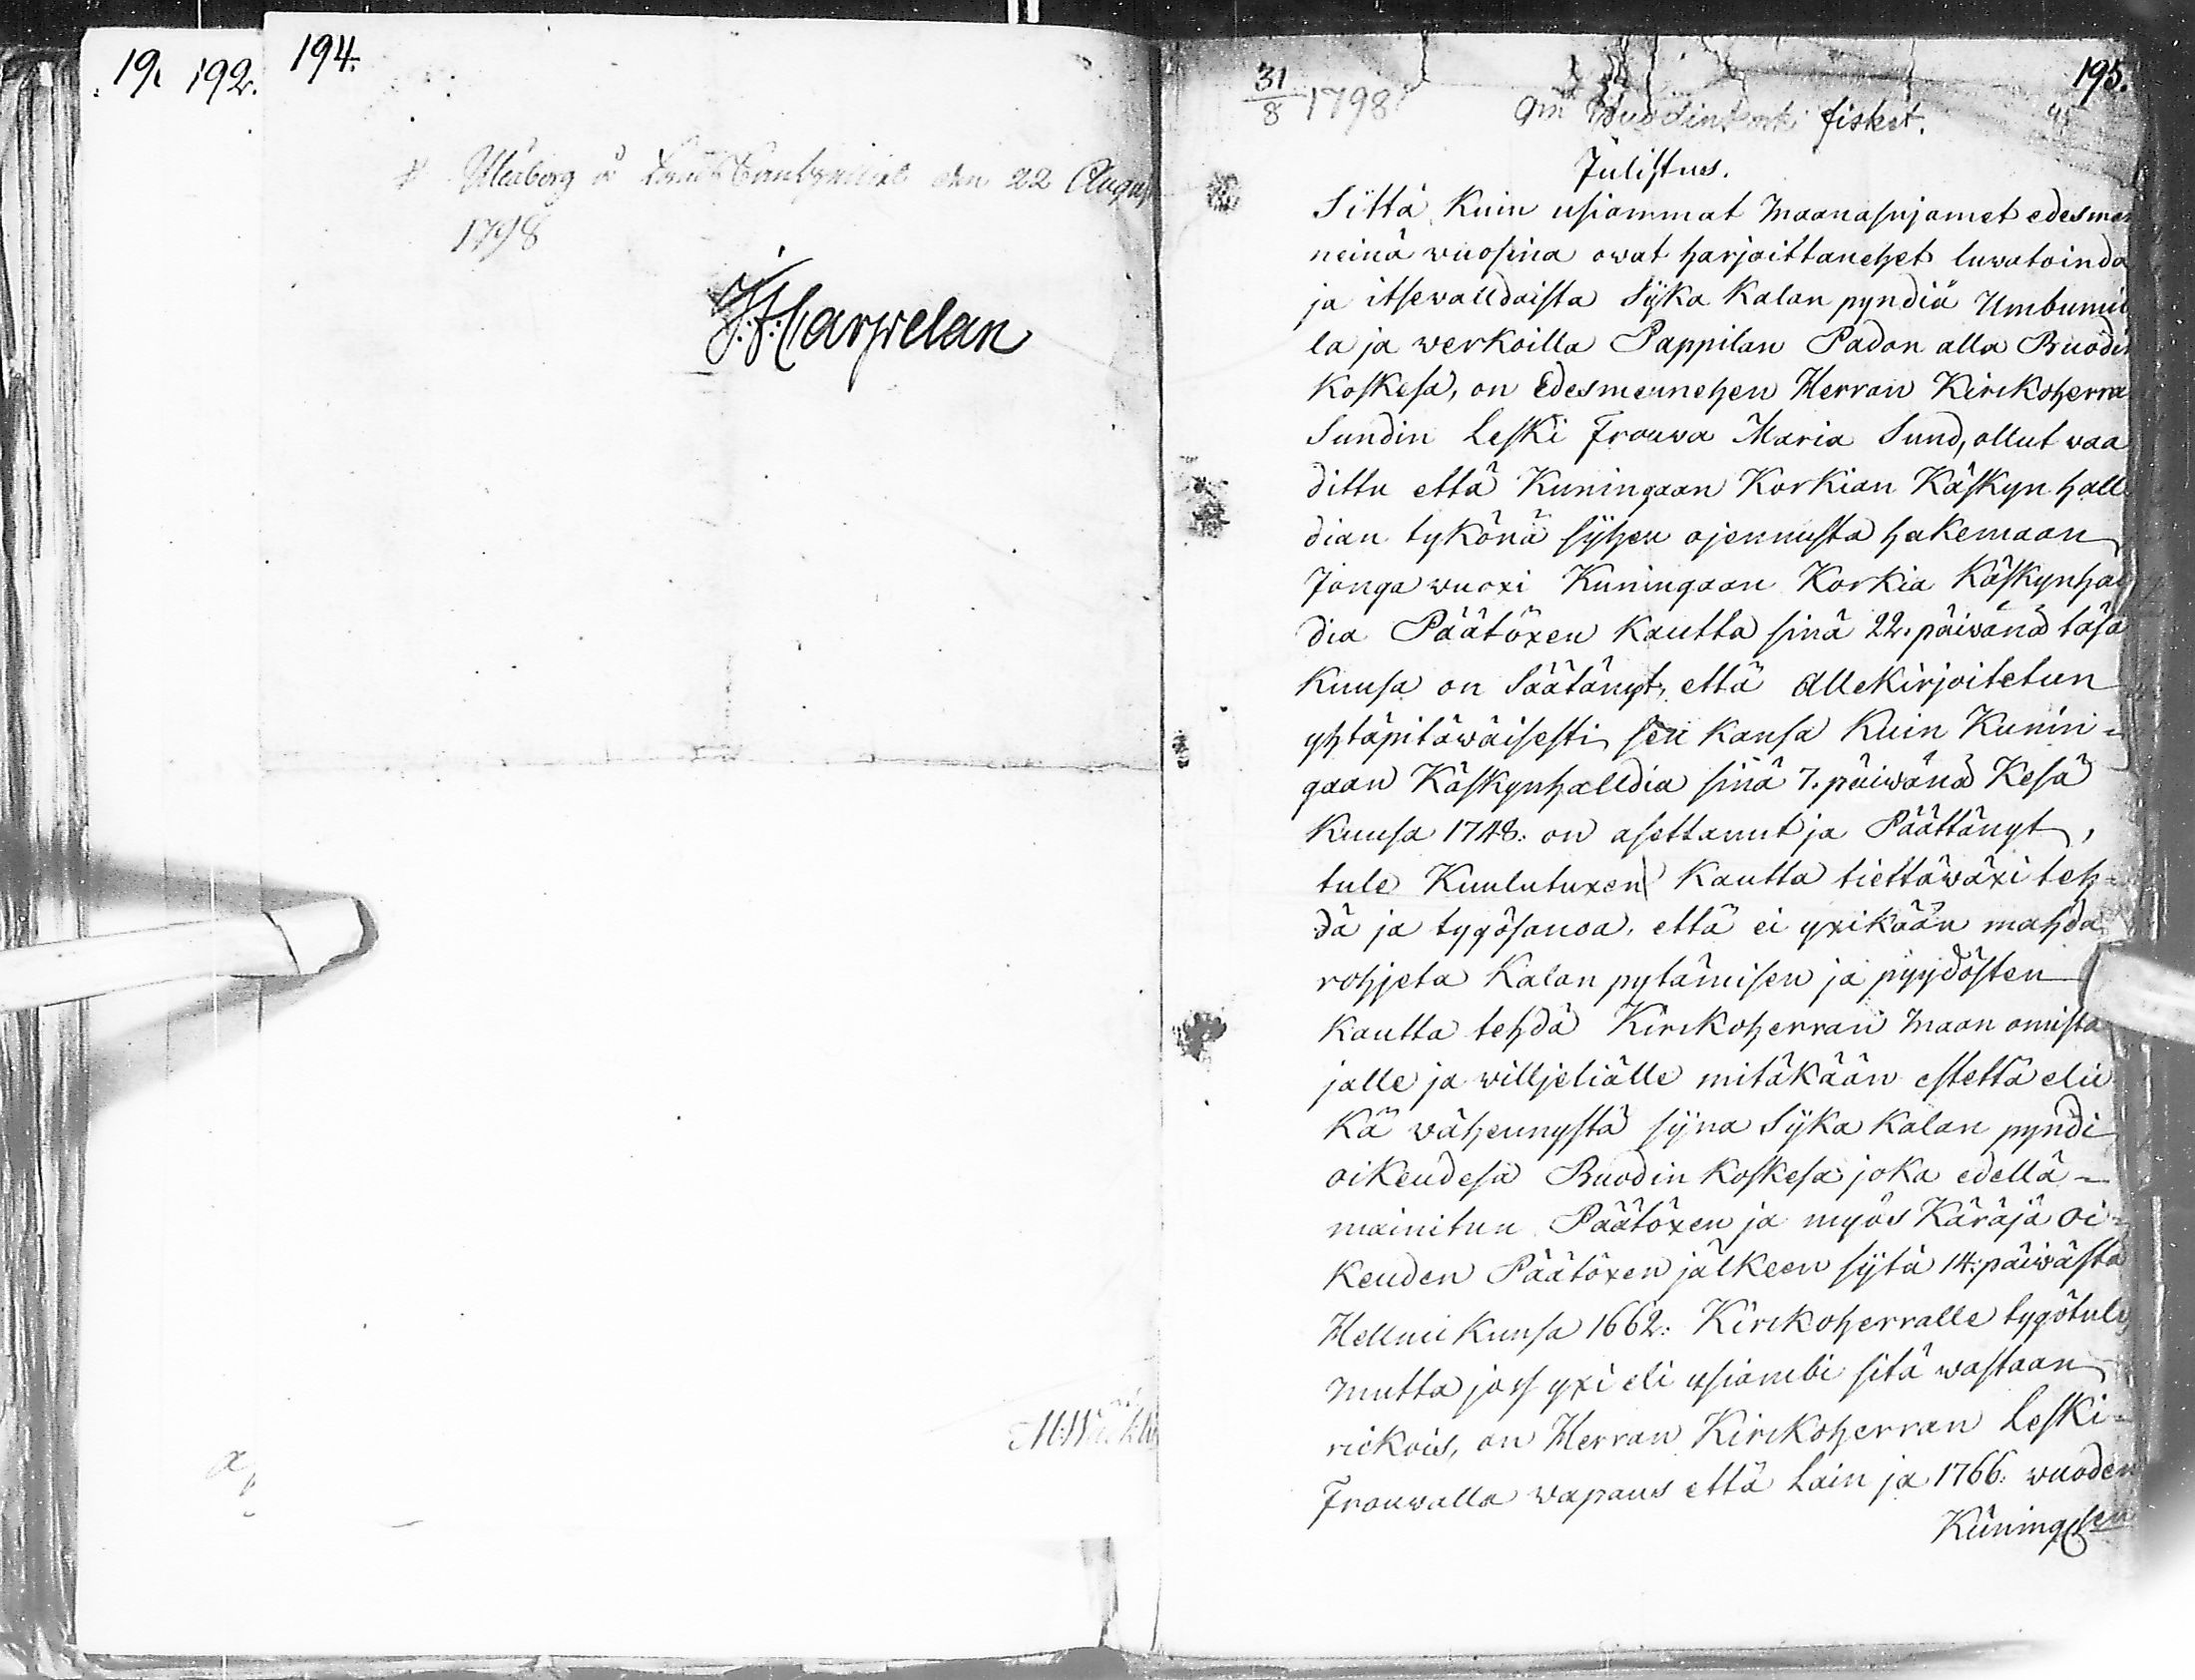 19. 192. 194.
Uleåborg å Lands Cantzeliet den 22 August
1798
J. F. Carpelan
195.
31/8 1798
Om fisket.
Julistus.
Sittä kuin usiammat maanasujamet edesmen
neinä wuosina owat harjoittanehet luwatoinda
ja itsewalldaista Syka kalan pyndiä Umbumil
la ja werkoilla Pappilan Padon alla Ruodin
koskesa, on Edesmennehen Herran Kirckoherra
Sundin Leski Frouwa Maria Sund, ollut waa
dittu että Kuningaan Korkian Käskyn hall
dian tykönä syhen ojennusta hakemaan
Jonga wuoxi Kuningaan Korkia Käskynhal
dia Päätöxen kautta sinä 22. päiwänä täsä
kuusa on Säätänyt, että allekirjoitetun
yhtäpitäwäisesti sen kansa kuin Kunin-
gaan Käskynhalldia sinä 7. päiwänä Kesä
kuusa 1748: on asettanut ja Päättänyt,
tule Kuulutuxen kautta tiettäwäxi teh-
dä ja tygösanoa, että ei yxikään mahda
rohjeta Kalan pytämisen ja pyydösten
kautta tehdä Kirckoherran maan omista
jalle ja willjeliälle mitäkään estettä elic
kä wähennystä syna Syka kalan pyndi
oikeudesa Ruodin koskesa joka edellä-
mainitun Päätöxen ja myös Käräjä oi-
keuden Päätöxen jälkeen sytä 14: päiwästä
Hellmikuusa 1662: Kirckoherralle tygötule,
mutta jos yxi eli usiambi sitä wastaan
rickois, on Herran Kirckoherran Leski-
Frouwalla wapaus että Lain ja 1766: wuoden
Kuningesen